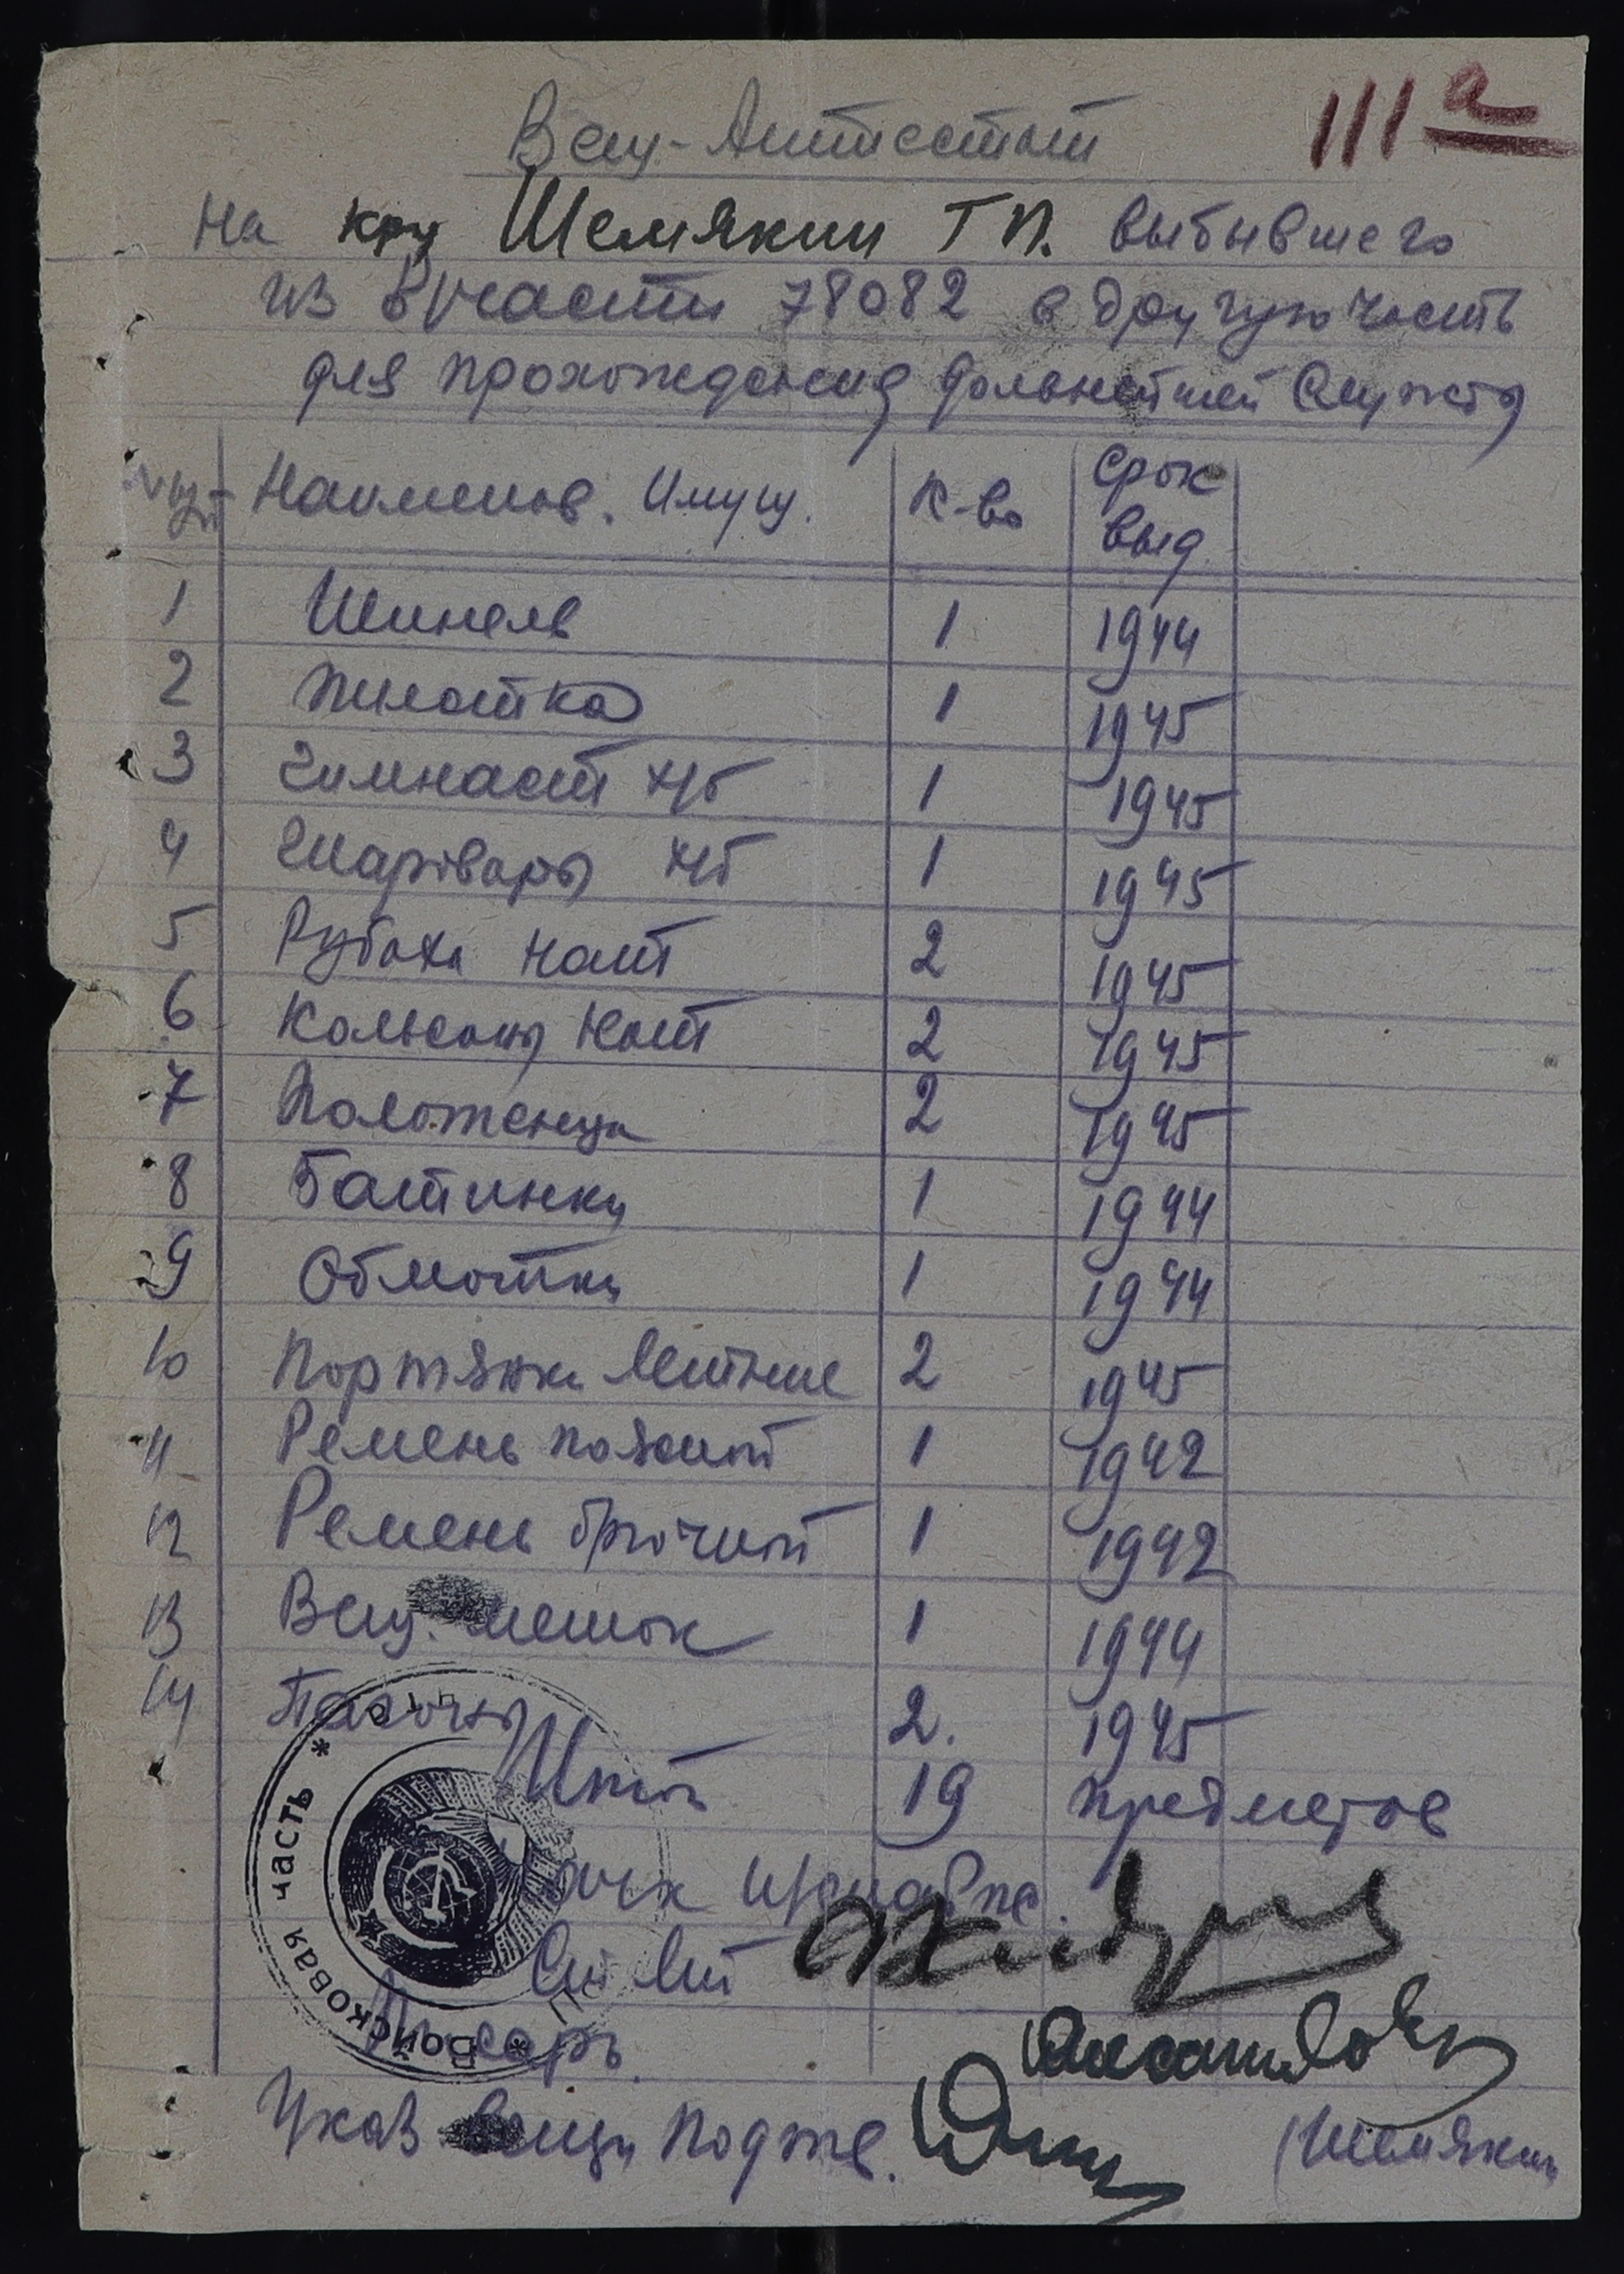 111а
Вещ-Аттестат
на кр-ц Шемякин Г П. выбывшего
из в/части 78082 в другую часть
для прохождения дальнейшей службы
Наименов. Имущ. К-во Срок выд.
1 Шинель 1 1944
2 Пилотка 1 1945
3 Гимнаст х/б 1 1945
4 Шаровары х/б 1 1945
5 Рубаха нат 2 1945
6 Кальсоны нат 2 1945
7 Полотенца 2 1945
8 Батинки 1 1944
9 Обмотки 1 1944
10 Портянки летние 2 1945
11 Ремень поясной 1 1942
12 Ремень брючной 1 1942
13 Вещ. мешок 1 1944
14 Погоны 2. 1945
Итого 19 предметов
Войсковая часть
Ст Лт
Писарь.
Указ вещи подтв. (Шемякин